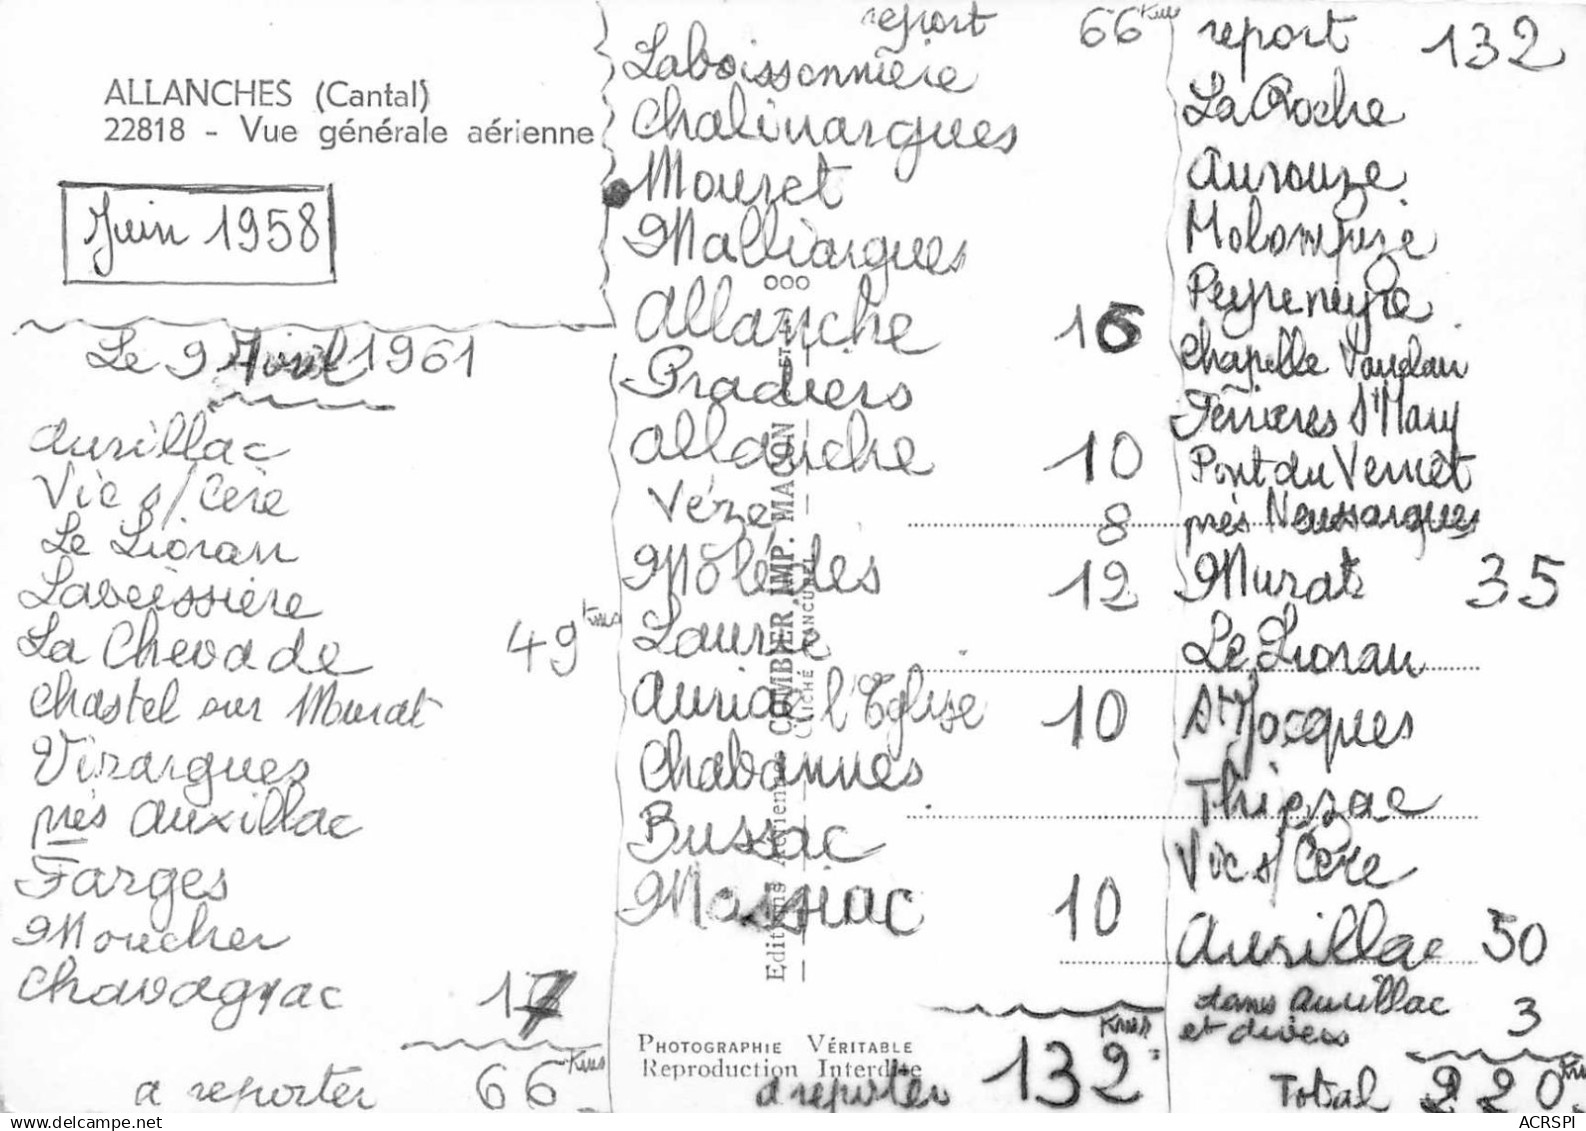 ALLANCHES (Cantal)
22818 - Vue générale aérienne
Juin 1958
Le 9 Avril 1961
Aurillac
Vic s/ Cère
Le Lioran
Laveissière
La Chevade 49 Kms
Chastel sur Murat
Virargues
près Auxillac
Farges
Moucher
Chavagnac 17
a reporter 66 Kms
report 66 Kms
Laboissonnière
Chalinargues
Mouret
Malliargues
Allanche 16
Pradiers
Allanche 10
Vèze 8
Molèdes 12
Laurie
Auriac l'Eglise 10
Chabannes
Bussac
Massiac 10
Kms
a reporter 132
Editions Aériennes COMBIER IMP. MACON
CLICHÉ
PHOTOGRAPHIE VÉRITABLE
Reproduction Interdite
report 132
La Roche
Aurouze
Molompize
Peyreneyre
Chapelle Vauclair
Ferrières St Mary
Pont du Vernet
près Neussargues
Murat 35
Le Lioran
St Jacques
Thiézac
Vic s/ Cère
Aurillac 50
dans Aurillac
et divers 3
Total 220 Kms
ACRSPI